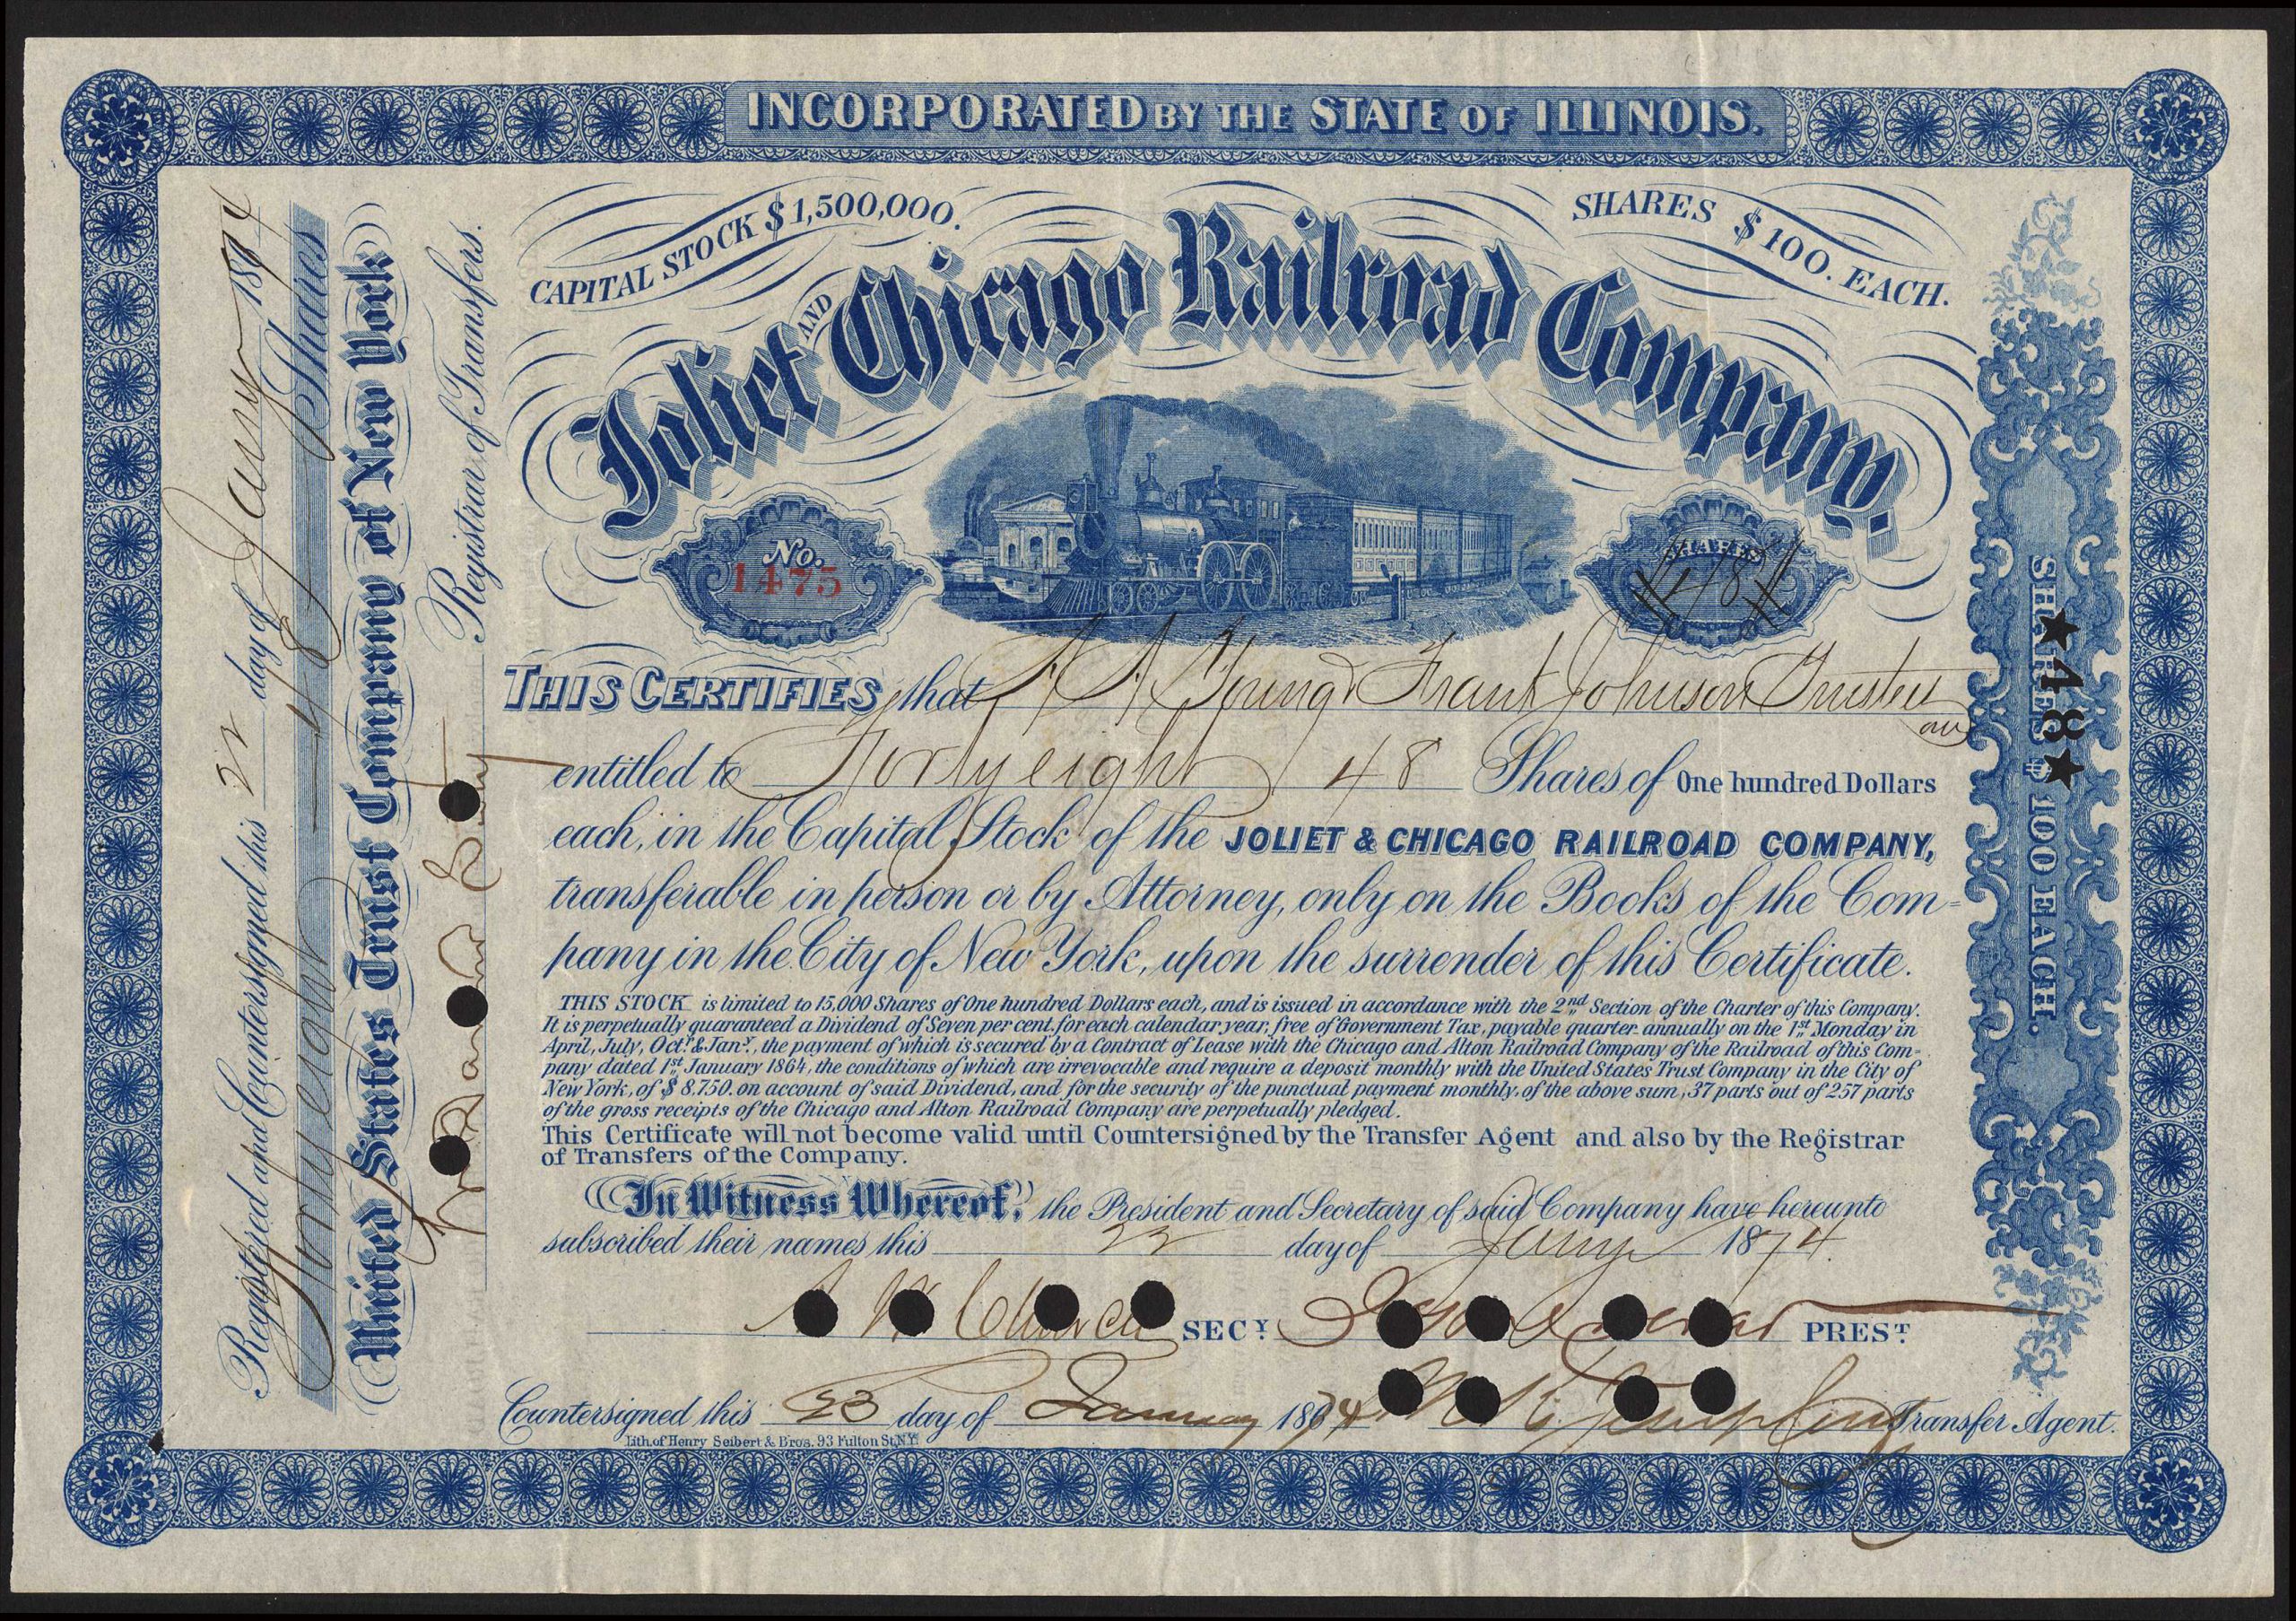 INCORPORATED BY THE STATE OF ILLINOIS.
CAPITAL STOCK $1,500,000.
SHARES $100. EACH.
Joliet AND Chicago Railroad Company.
No.
1475
SHARES
48
THIS CERTIFIES that Young & Frank Johnson Trustees
are
entitled to Forty eight 48 Shares of One hundred Dollars
each, in the Capital Stock of the JOLIET & CHICAGO RAILROAD COMPANY,
transferable in person or by Attorney, only on the Books of the Com=
pany in the City of New York, upon the surrender of this Certificate.
THIS STOCK is limited to 15,000 Shares of One hundred Dollars each, and is issued in accordance with the 2nd Section of the Charter of this Company.
It is perpetually guaranteed a Dividend of Seven per cent. for each calendar year, free of Government Tax, payable quarter annually on the 1st Monday in
April, July, Octr. & Jany., the payment of which is secured by a Contract of Lease with the Chicago and Alton Railroad Company of the Railroad of this Com=
pany dated 1st January 1864, the conditions of which are irrevocable and require a deposit monthly with the United States Trust Company in the City of
New York, of $8.750. on account of said Dividend, and for the security of the punctual payment monthly, of the above sum, 37 parts out of 257 parts
of the gross receipts of the Chicago and Alton Railroad Company are perpetually pledged.
This Certificate will not become valid until Countersigned by the Transfer Agent and also by the Registrar
of Transfers of the Company.
In Witness Whereof, the President and Secretary of said Company have hereunto
subscribed their names this 22 day of Jany 1874.
Church SECY. PREST.
Countersigned this 23 day of January 1874 Transfer Agent.
Lith. of Henry Seibert & Bros. 93 Fulton St. N.Y.
Registered and Countersigned this 22 day of Jany 1874
Forty eight 48 Shares
United States Trust Company of New York
Registrar of Transfers.
SHARES $100 EACH.
★48★